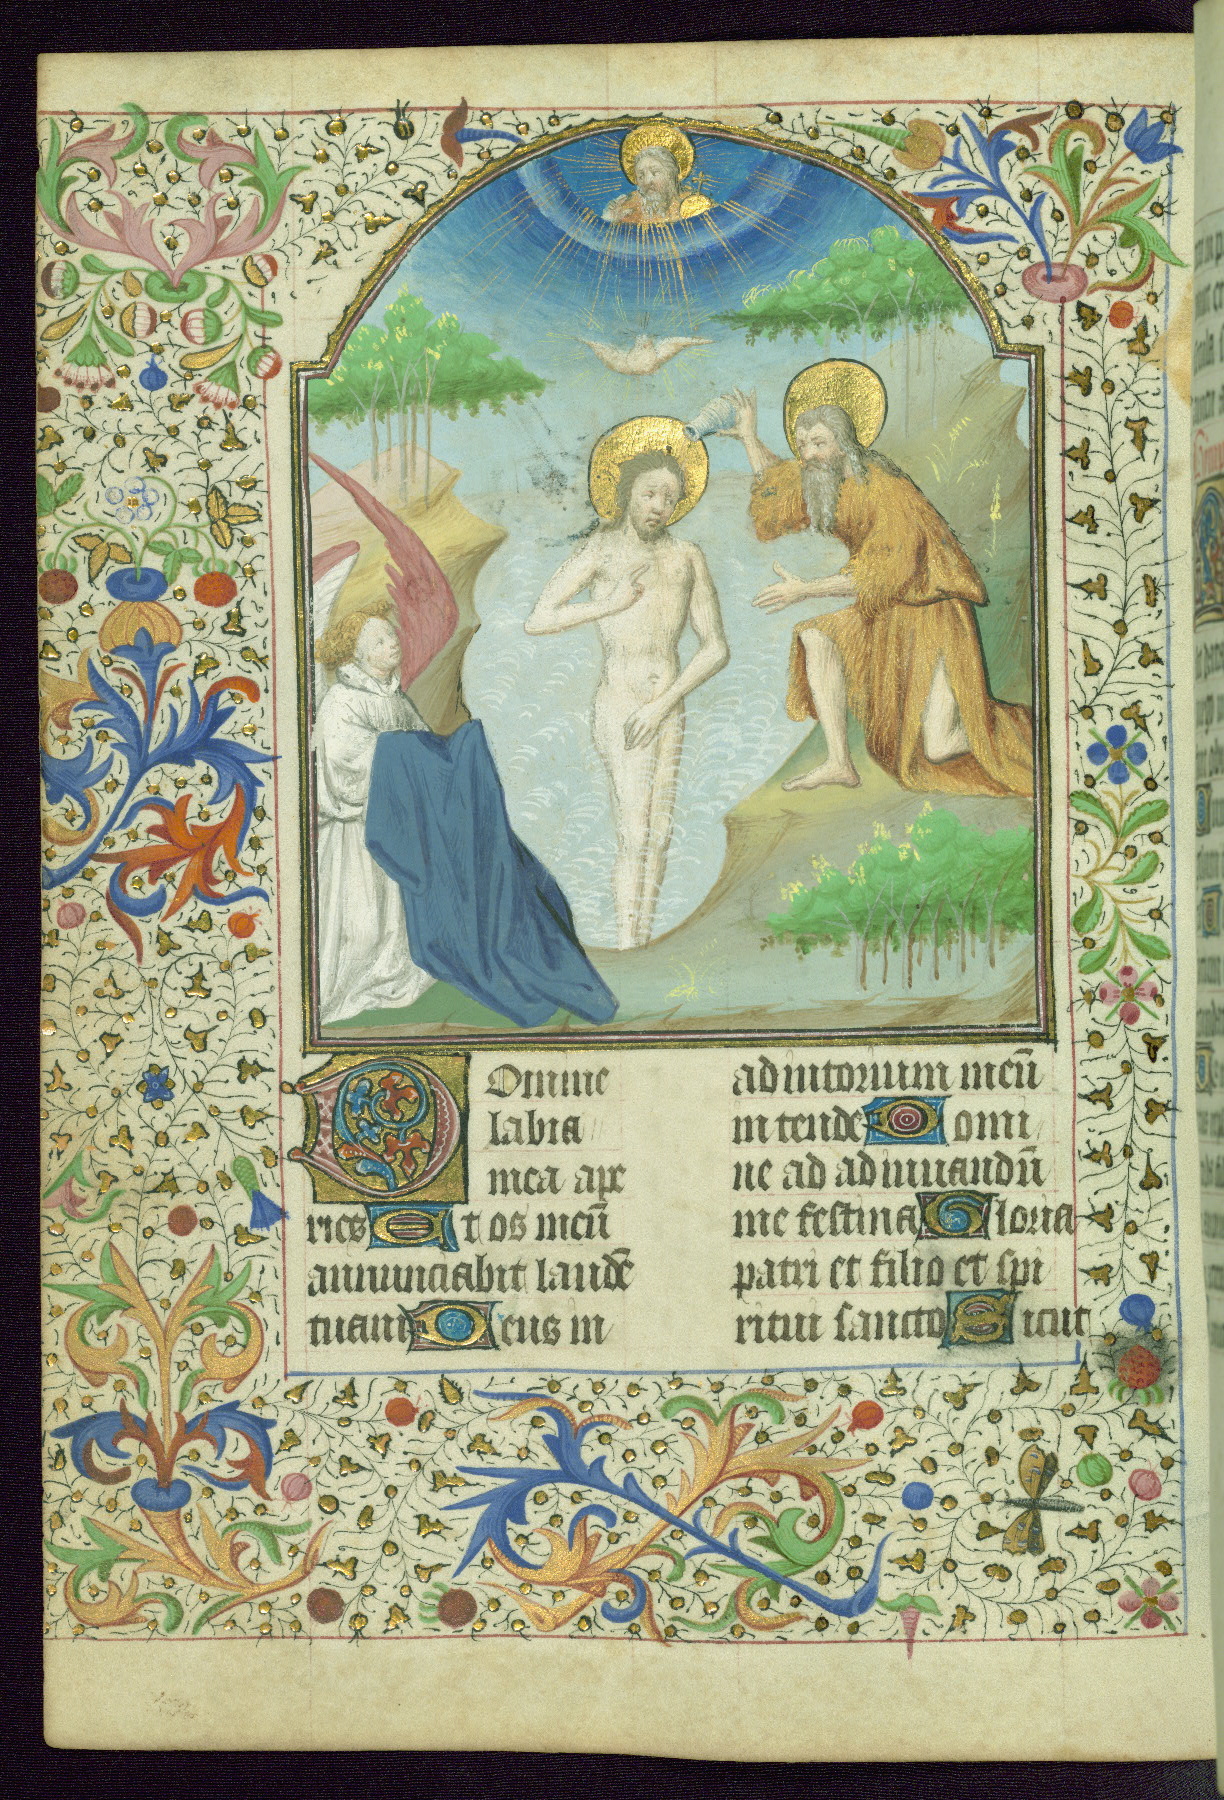 Domine
labia
mea ape
ries Et os meū
annunciabit laudē
tuam Deus in
adiutorium meū
intende Domi
ne ad adiuuandū
me festina Gloria
patri et filio et spi
ritui sancto Sicut